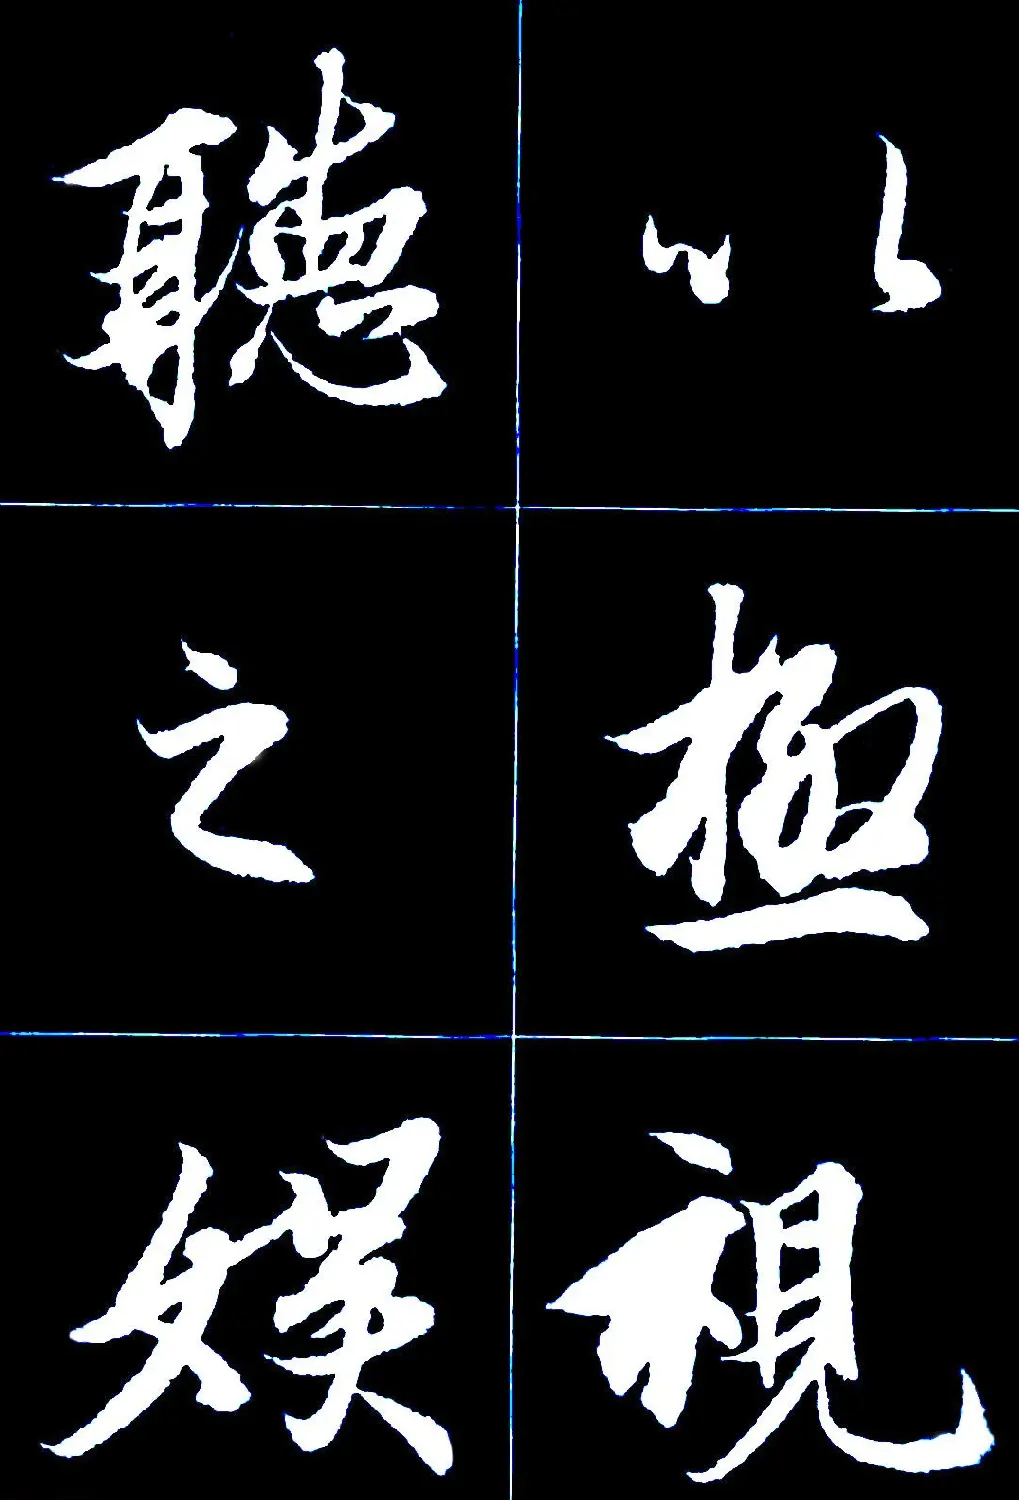 以極視
聽之娛